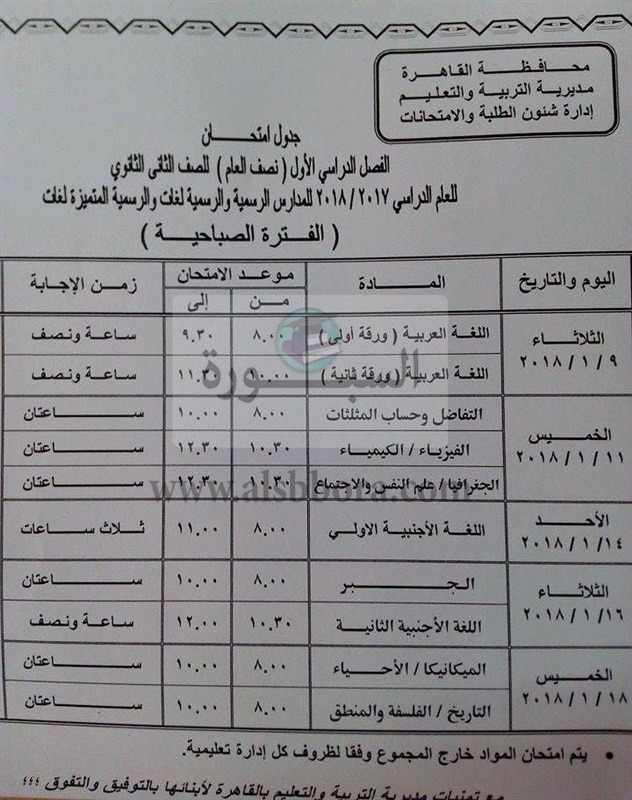 محافظة القاهرة
مديرية التربية والتعليم
إدارة شئون الطلبة والامتحانات
جدول امتحان
الفصل الدراسي الأول ( نصف العام ) للصف الثانى الثانوي
للعام الدراسي ٢٠١٧ / ٢٠١٨ للمدارس الرسمية والرسمية لغات والرسمية المتميزة لغات
( الفترة الصباحية )
اليوم والتاريخ المادة موعد الامتحان زمن الإجابة
من إلى
الثلاثاء ٢٠١٨ / ١ / ٩
اللغة العربية ( ورقة أولى ) ٨.٠٠ ٩.٣٠ ساعة ونصف
اللغة العربية ( ورقة ثانية ) ١٠.٠٠ ١١.٣٠ ساعة ونصف
الخميس ٢٠١٨ / ١ / ١١
التفاضل وحساب المثلثات ٨.٠٠ ١٠.٠٠ ساعتان
الفيزياء / الكيمياء ١٠.٣٠ ١٢.٣٠ ساعتان
الجغرافيا / علم النفس والاجتماع ١٠.٣٠ ١٢.٣٠ ساعتان
الأحد ٢٠١٨ / ١ / ١٤
اللغة الأجنبية الاولي ٨.٠٠ ١١.٠٠ ثلاث ساعات
الثلاثاء ٢٠١٨ / ١ / ١٦
الجبر ٨.٠٠ ١٠.٠٠ ساعتان
اللغة الأجنبية الثانية ١٠.٣٠ ١٢.٠٠ ساعة ونصف
الخميس ٢٠١٨ / ١ / ١٨
الميكانيكا / الأحياء ٨.٠٠ ١٠.٠٠ ساعتان
التاريخ / الفلسفة والمنطق ٨.٠٠ ١٠.٠٠ ساعتان
• يتم امتحان المواد خارج المجموع وفقا لظروف كل إدارة تعليمية.
مع تمنيات مديرية التربية والتعليم بالقاهرة لأبنائها بالتوفيق والتفوق ؛؛؛
السبورة
www.alsbbora.com